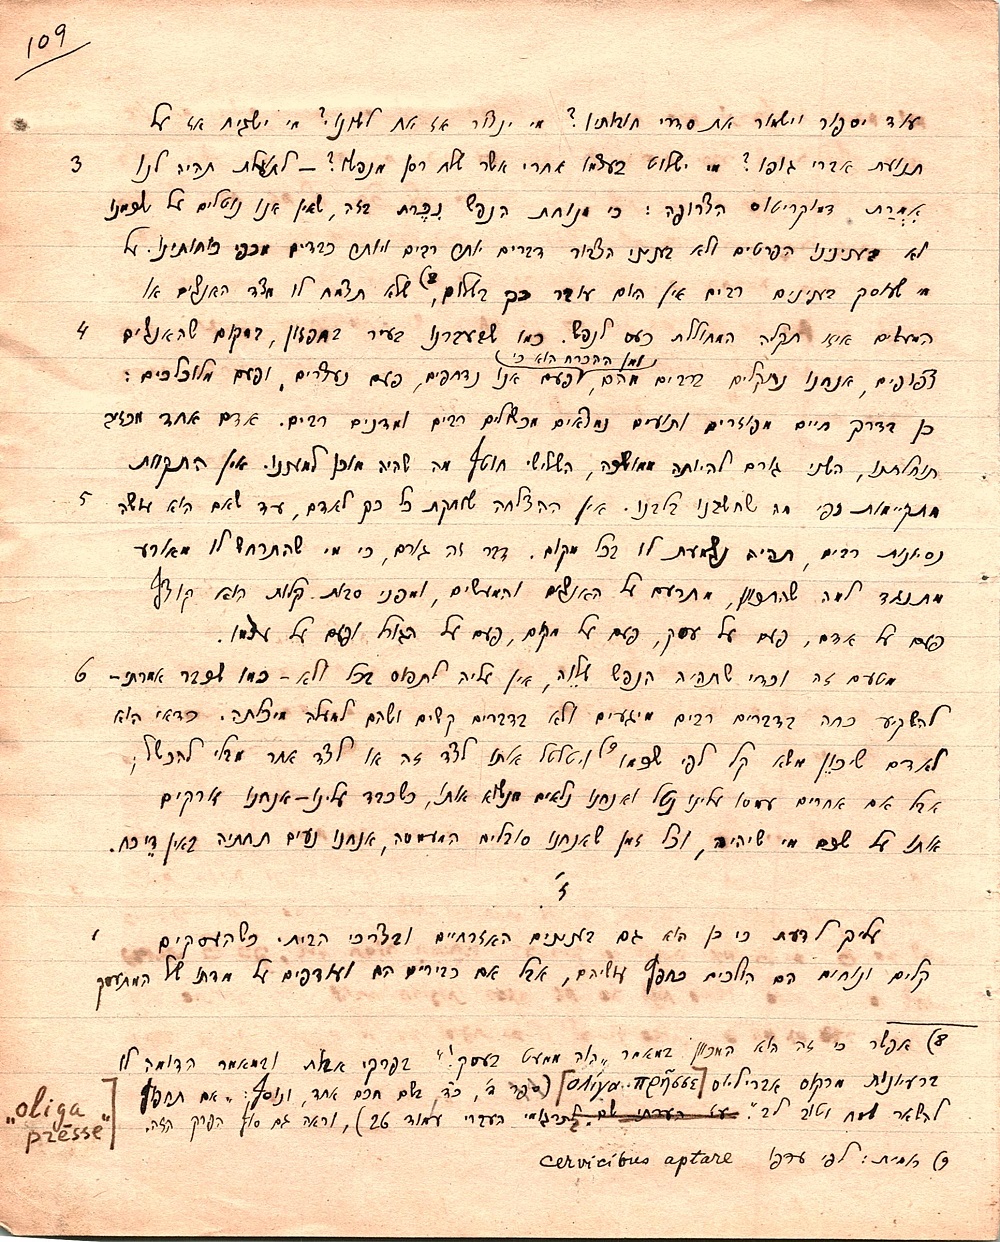 109
עוד יספור וישמור את סדרי חובותיו? מי ינצור אז את לשונו? מי ישגיח אז על
3 תנועת אברי גופו? מי ישלוט בעצמו אחרי אשר שלח רסן מנפשו? – לתועלת תהיה לנו
אִמְרַת דמוקריטוס הצרופה: כי מנוחת הנפש נִכֶּרת בזה, שאין אנו נוטלים על שכמנו
לא בעניננו הפרטים ולא בעניני הצבור דברים יותר רבים ויותר כבדים מכפי כוחותינו. על
מי שעוסק בענינים רבים אין היום עובר כך בשלום,8) שלא תצמח לו מצד האנשים או
4 המעשים איזו תקלה המחוללת כעס לנפש. כמו שבעברנו בעיר בחפזון, במקום שהאנשים
ומן ההכרח הוא כי
צפופים, אנחנו נתקלים ברבים מהם, ופעם אנו נדחפים, פעם נעצרים, ופעם מלוכלכים:
כן בדרך חיים מפוזרים ותועים נמצאים מכשולים רבים ומדנים רבים. אדם אחד מכזיב
תוחלתנו, השני גורם להיותה ממושכה, השלישי חוטף מה שהיה מוכן למעננו. אין התקוות
5 מתקיימות כפי מה שחשבנו בלבנו. אין ההצלחה שוחקת כל כך לאדם, עד שאם הוא עושה
נסיונות רבים, תהיה נשמעת לו בכל מקום. דבר זה גורם, כי מי שהתרחש לו מאורע
מתנגד למה שהתכוון, מתרעם על האנשים והמעשים, ומפני סבות קלות הוא קוצף
פעם על אדם, פעם על עסק, פעם על מקום, פעם על הגורל ופעם על עצמו.
6 מטעם זה וכדי שתהיה הנפש שלֵוה, אין עליה לתפוס בכל ולא – כמו שכבר אמרתי –
להשקיע כחה בדברים רבים מיגעים ולא בדברים קשים ושהם למעלה מיכלתה. כדאי הוא
לאדם שיכוֵּן משא קל לפי שכמו9) ויטלטל אותו לצד זה או לצד אחר מבלי להכשל;
אבל אם אחרים עמסו עלינו נטל ואנחנו נלאים מנשוא אותו, כשכבד עלינו – אנחנו זורקים
אותו על שכם מי שיהיה, וכל זמן שאנחנו סובלים המעמסה, אנחנו נעים תחתיה באין דֵי כח.
ז׳
1 עליך לדעת כי כן הוא גם בענינים האזרחיים ובצרכי הבית. כשהעסקים
קלים ונוחים הם הולכים כחפץ עושיהם, אבל אם כבירים הם ועודפים על מדתו של המתעסק
8) אפשר כי זה הוא המכוון במאמר „הוה ממעט בעסק!" בפרקי אבות ובמאמר הדומה לו
ברעיונות מרקוס אבריליוס [ὀλίγα πρῆσσε] (ספר ד׳, כד, בשם חכם אחד, ונוסף: „אם תחפץ
„oliga prēsse"
להשאר שמח וטוב לב". העברי עמוד 26), וראה גם סוף הפרק הזה.
9) רומית: לפי ערפו cervicibus aptare